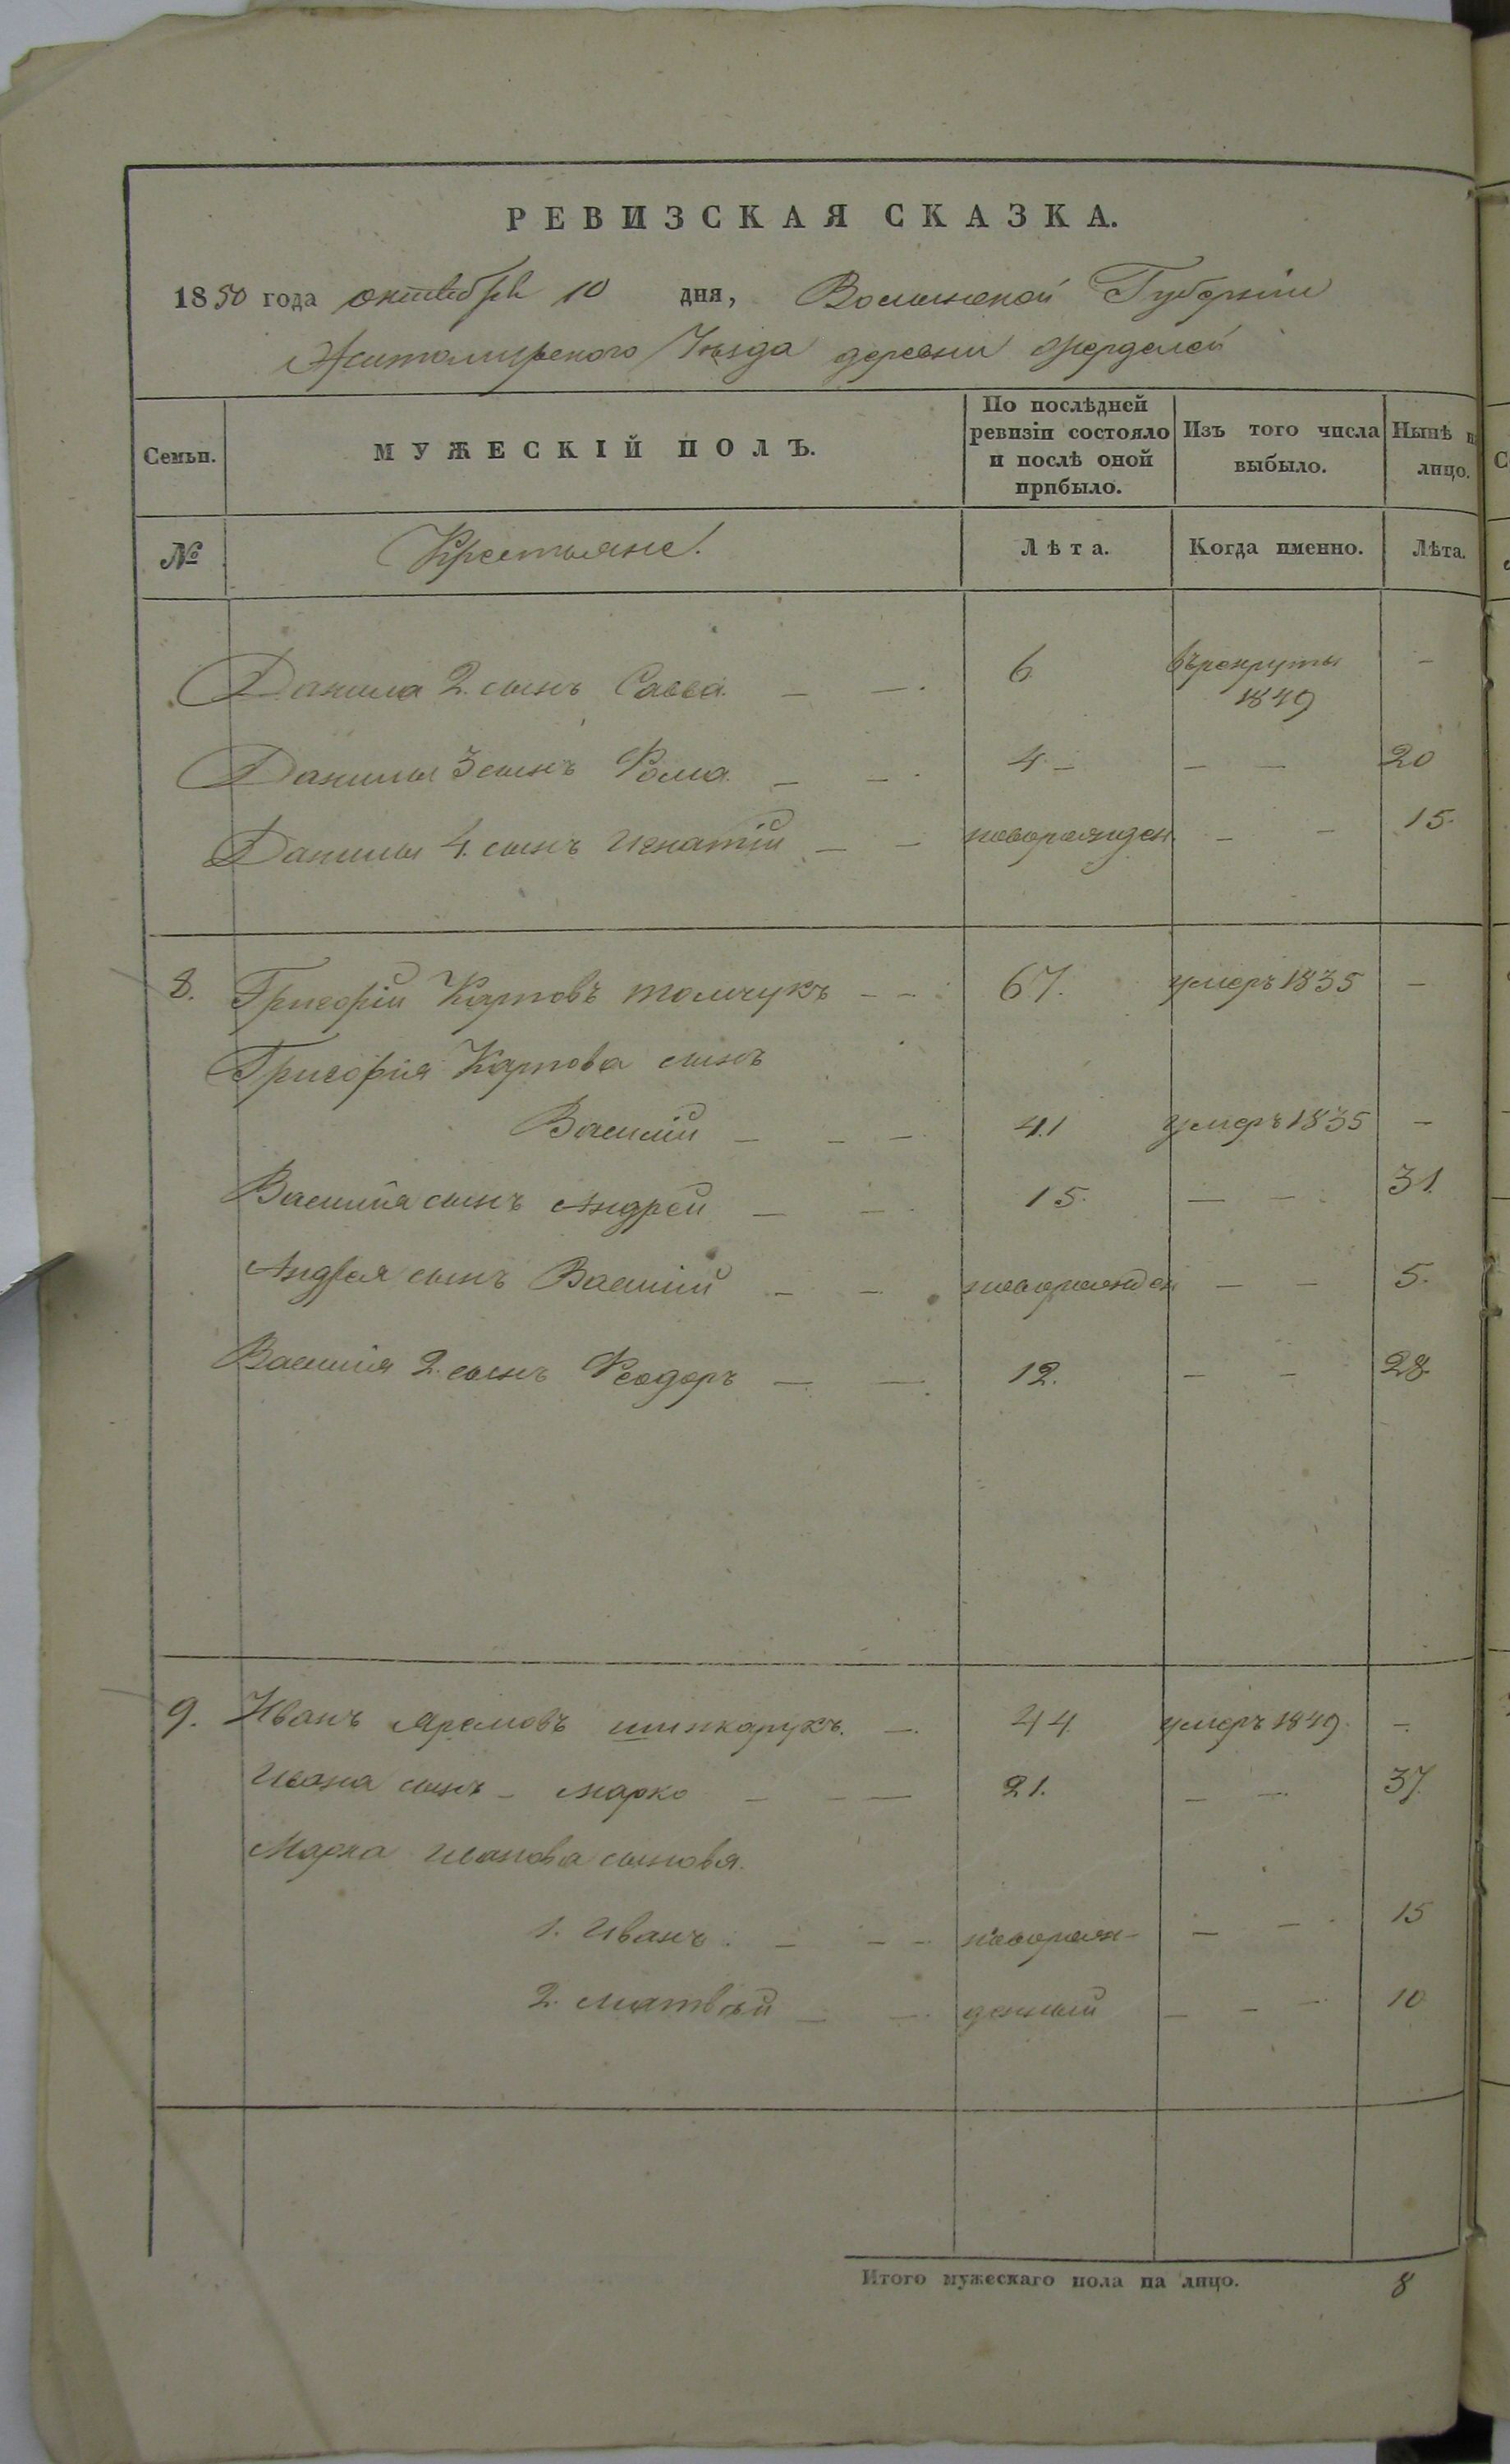 РЕВИЗСКАЯ СКАЗКА.
1850 года октября 10 дня, Волынской Губерніи
Житомирскаго Уѣзда деревни Жерделей
Семьи.
МУЖЕСКІЙ ПОЛЪ.
По послѣдней
ревизіи состояло
и послѣ оной
прибыло.
Изъ того числа
выбыло.
Нынѣ
лицо.
№
Крестьяне.
Лѣта.
Когда именно.
Лѣта.
Данила 2. сынъ Савва — —. 6 въ рекруты —
1849
Данилы 3 сынъ Фома. — —. 4 — — — 20
Данилы 4. сынъ Игнатій — — новорожден. — — 15.
8. Григорій Карповъ Томчукъ — — 67. умеръ 1835 —
Григорія Карпова сынъ
Василій — — — 41 умеръ 1835 —
Василія сынъ Андрей — —. 15. — — 31.
Андрея сынъ Василій — — новорожден — — 5.
Василія 2. сынъ Феодоръ — — 12. — — 28.
9. Иванъ Яремовъ Шинкарукъ. —. 44 умеръ 1849. —.
Ивана сынъ — Марко — — — 21. — — 37.
Марка Иванова сыновья.
1. Иванъ. — — — новорож- — — 15
2. Матвѣй — — денный — — — 10
Итого мужескаго пола на лицо. 8